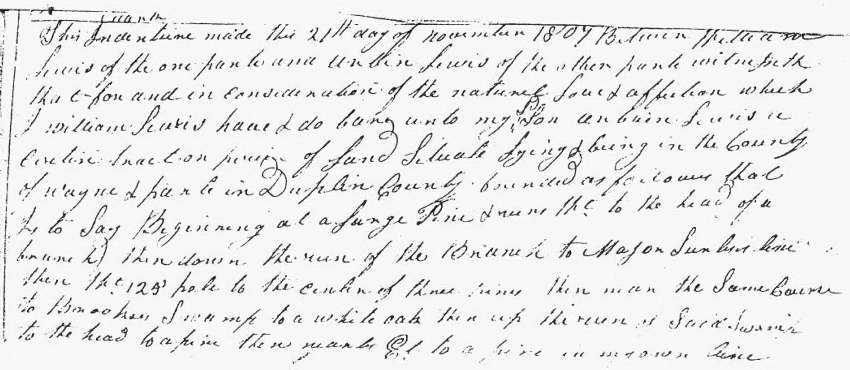 This Indenture made this 21st day of november 1807 Between William
Lewis of the one parte and Urbin Lewis of the other parte witnesseth
that for and in consideration of the natural Love & affection which
I william Lewis have & do bare unto my Son Urbin Lewis a
Certin tract on peice of Land Situate Lying & being in the County
of wayne & parte in Duplin County bounded as followes that
is to Say Beginning at a Large Pine & runs to the head of a
branch then down the run of the Branch to Major line
then pole to the center of three pines then the Same Course
to Swamp to a white oak then up the run of Said Swamp
to the head to a pine then to a pine in line